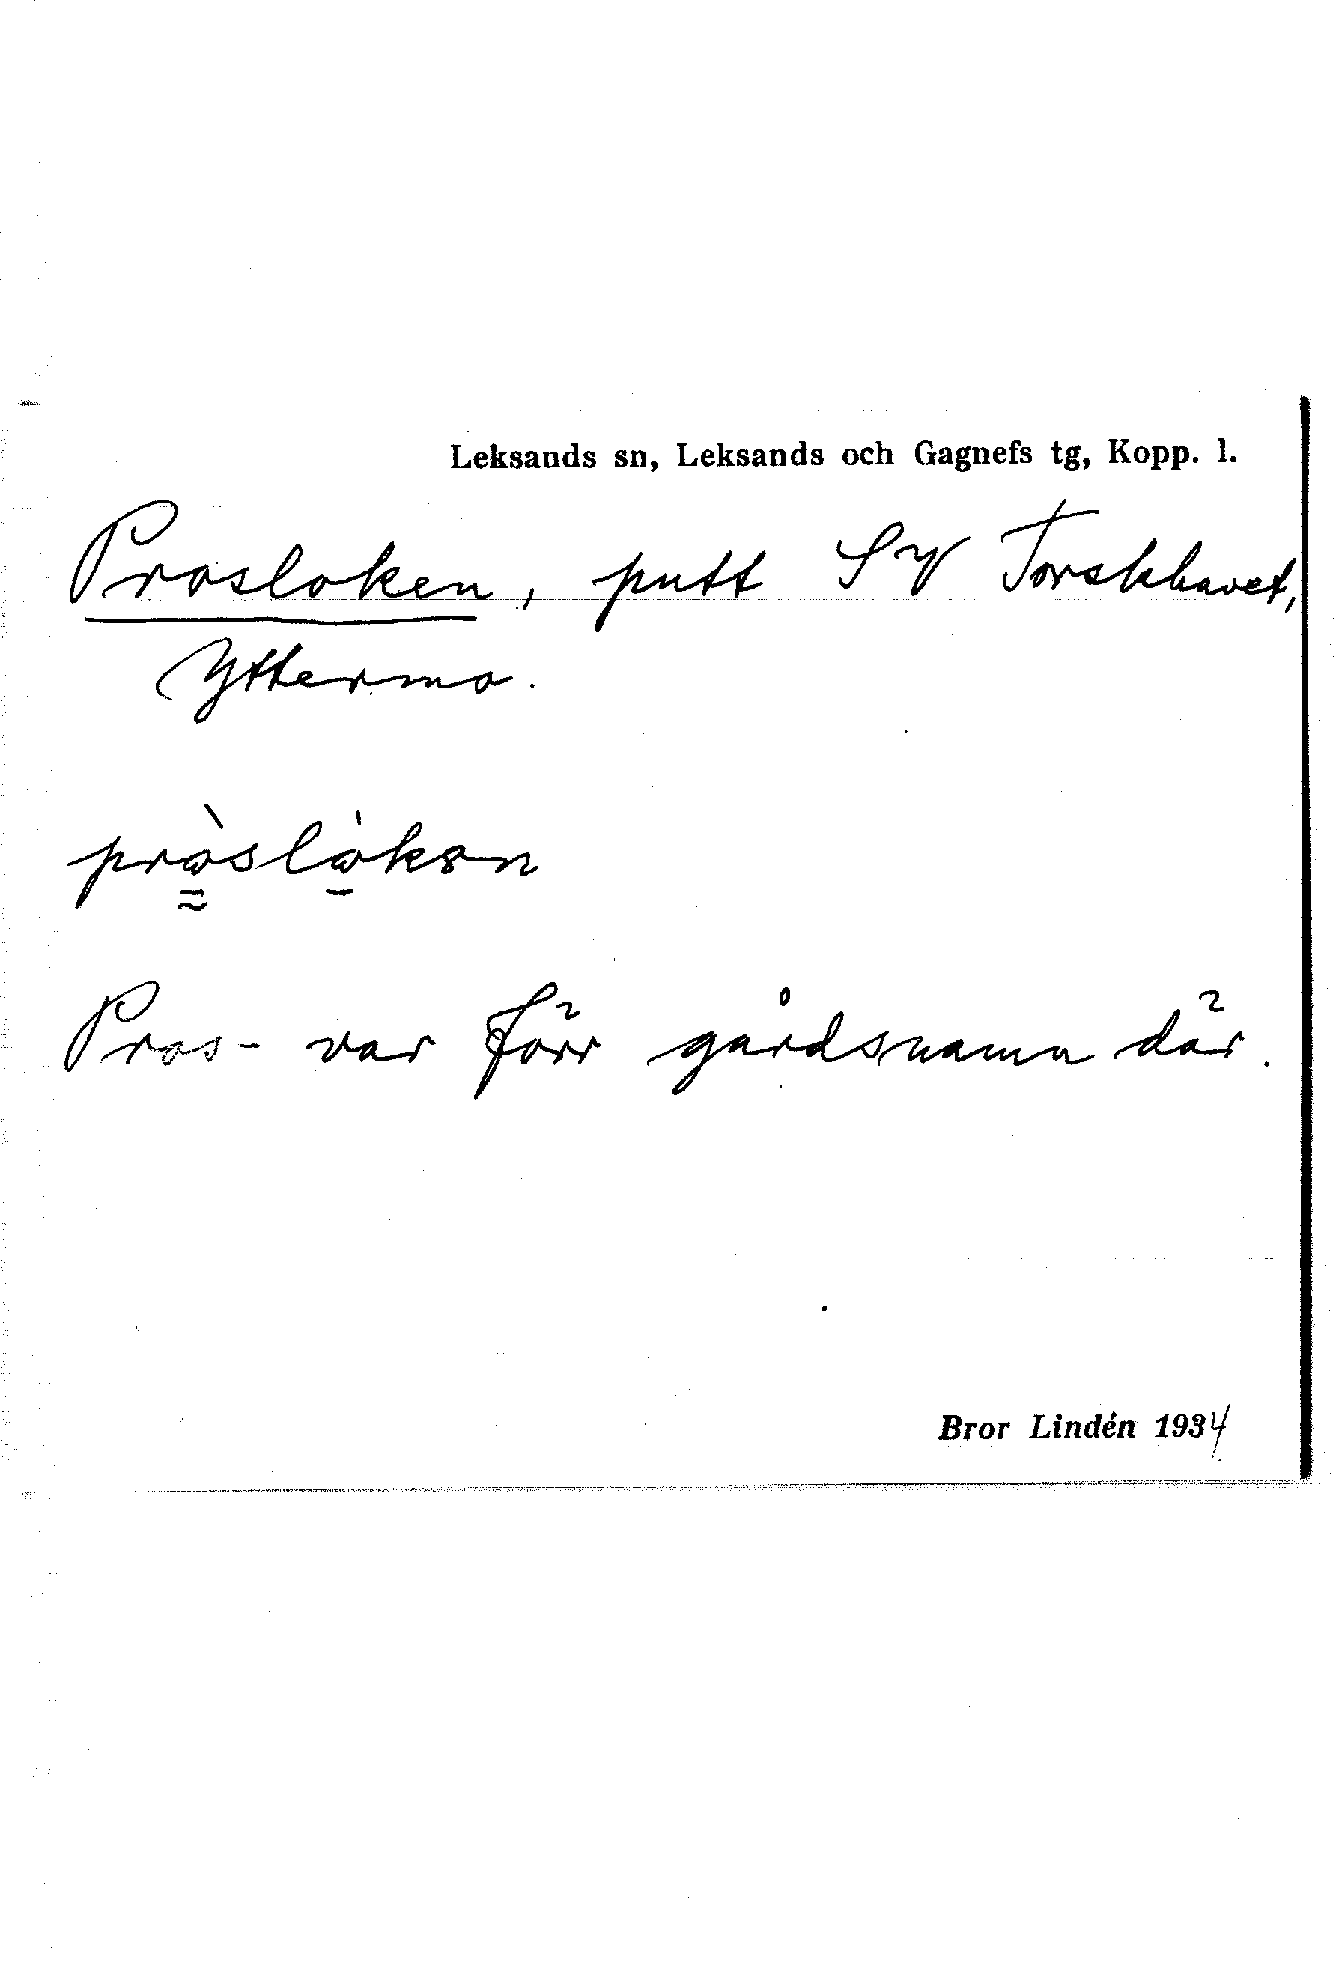 Leksands sn, Leksands och Gagnefs tg, Kopp. l.
Prosloken, putt SV Torskhavet,
Yttermo.
pròslòkən
Pros- var förr gårdsnamn där.
Bror Lindén 1934